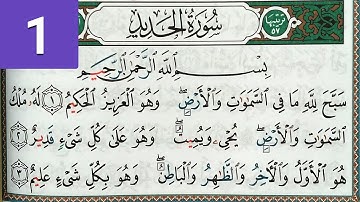 1
سُورَةُ الْحَدِيدِ
ترتيبها
٥٧
بِسْمِ اللَّهِ الرَّحْمَٰنِ الرَّحِيمِ
سَبَّحَ لِلَّهِ مَا فِى السَّمَٰوَٰتِ وَالْأَرْضِ ۖ وَهُوَ الْعَزِيزُ الْحَكِيمُ ١ لَهُۥ مُلْكُ
السَّمَٰوَٰتِ وَالْأَرْضِ ۖ يُحْىِۦ وَيُمِيتُ ۖ وَهُوَ عَلَىٰ كُلِّ شَىْءٍ قَدِيرٌ ٢
هُوَ الْأَوَّلُ وَالْآخِرُ وَالظَّٰهِرُ وَالْبَاطِنُ ۖ وَهُوَ بِكُلِّ شَىْءٍ عَلِيمٌ ٣